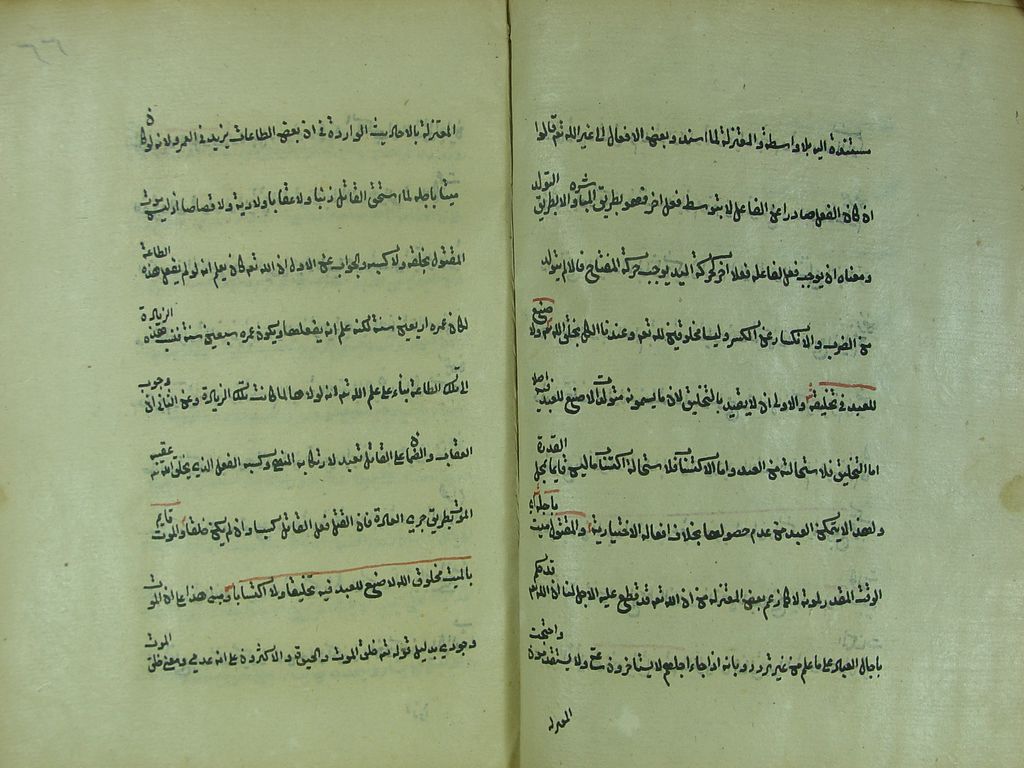 مستندة اليه بلا واسطة والمعتزلة لما اسندوا بعض الافعال الى غير الله تعالى قالوا
ان كان الفعل صادرا عن الفاعل لا بتوسط فعل اخر فهو بطريق المباشرة والا بطريق التولد
ومعناه ان يوجب فعل لفاعله فعلا آخر كحركة اليد يوجب حركة المفتاح فالالم يتولد
من الضرب والانكسار عن الكسر وليسا مخلوقين لله تع وعندنا الكل بخلق الله تع ولا صنع
للعبد في تخليقه والاولى ان لا يقيد بالتخليق لان ما يسمونه متولدات لا صنع للعبد فيه اصلا
اما التخليق فلاستحالته من العبد واما الاكتساب فلاستحالة اكتساب ما ليس قايما بمحل القدرة
ولهذا لا يتمكن العبد من عدم حصولها بخلاف افعاله الاختيارية والمقتول ميت باجله اي
الوقت المقدر لموته لا كما زعم بعض المعتزلة من ان الله تع قد قطع عليه الاجل لنا ان الله تع قد حكم
باجال العباد على ما علم من غير تردد وبانه اذا جاء اجلهم لا يستاخرون ساعة ولا يستقدمون واحتجت
المعتزلة
٦٦
المعتزلة بالاحاديث الواردة في ان بعض الطاعات يزيد في العمر ولانه لو كان
ميتا باجله لما استحق القاتل ذنبا ولا عقابا ولا دية ولا قصاصا اذ ليس موت
المقتول بخلقه ولا كسبه والجواب عن الاول ان الله تع كان يعلم انه لو لم يفعل هذه الطاعة
لكان عمره اربعين سنة لكنه علم انه يفعلها ويكون عمره سبعين سنة فنسب هذه الزيادة
الى تلك الطاعة بناء على علم الله تع انه لولاها لما كانت تلك الزيادة وعن الثاني ان وجوب
العقاب والضمان على القاتل تعبد لارتكابه المنهي وكسبه الفعل الذي يخلق الله تع عقيبه
الموت بطريق جري العادة فان القتل فعل القاتل كسبا وان لم يكن خلقا والموت قايم
بالميت مخلوق الله لا صنع للعبد فيه تخليقا ولا اكتسابا ومبنى هذا على ان الموت
وجودي بدليل قوله تع خلق الموت والحيوة والاكثرون على انه عدمي ومعنى خلق الموت